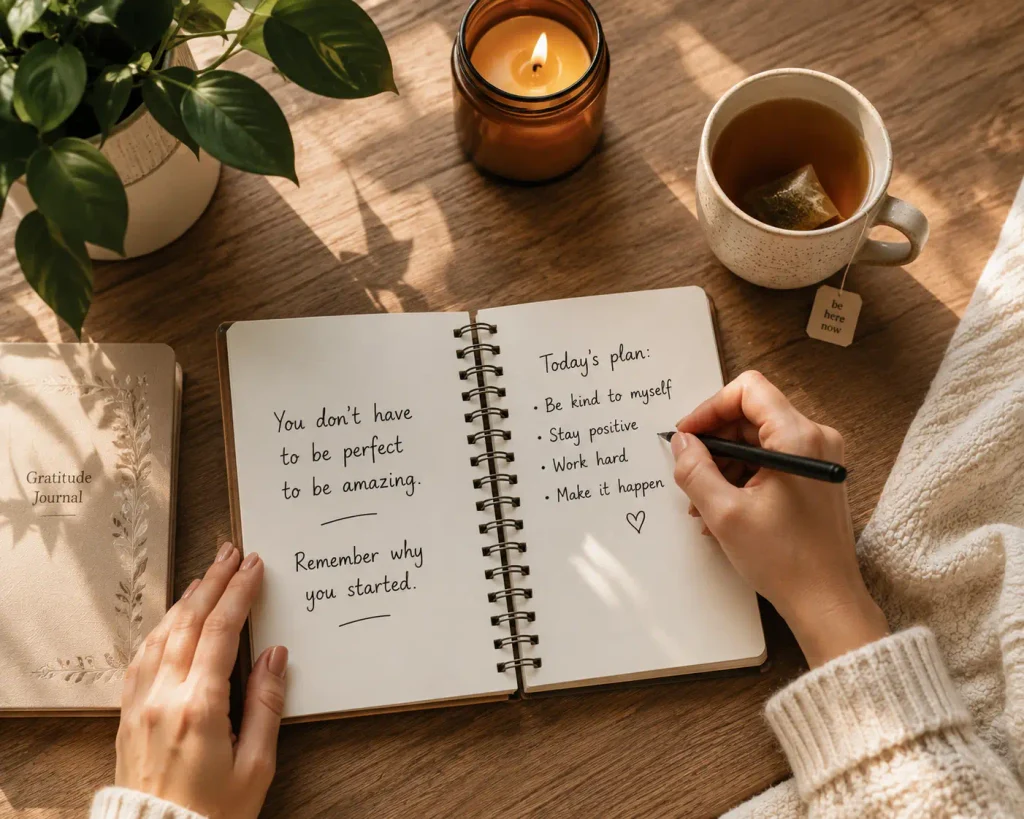 You don't have
to be perfect
to be amazing.
Remember why
you started.
Today's plan:
• Be kind to myself
• Stay positive
• Work hard
• Make it happen
Gratitude
Journal
be
here
now